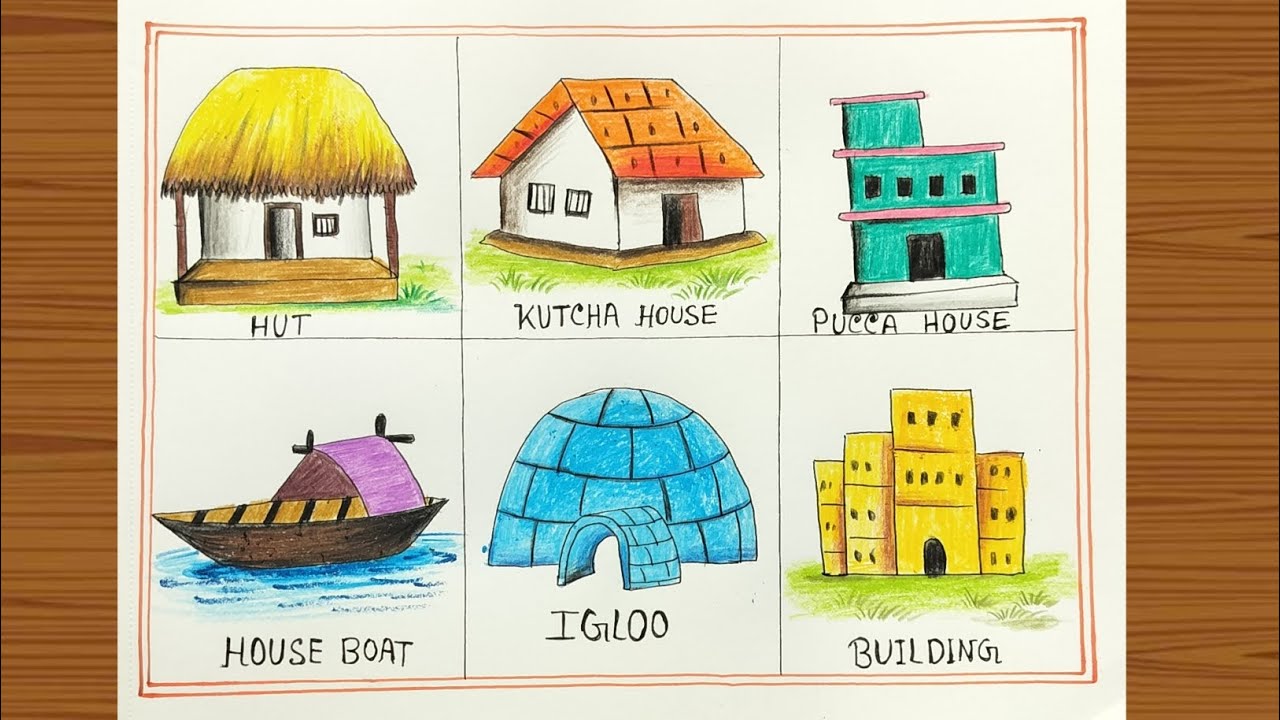 HUT
KUTCHA HOUSE
PUCCA HOUSE
HOUSE BOAT
IGLOO
BUILDING